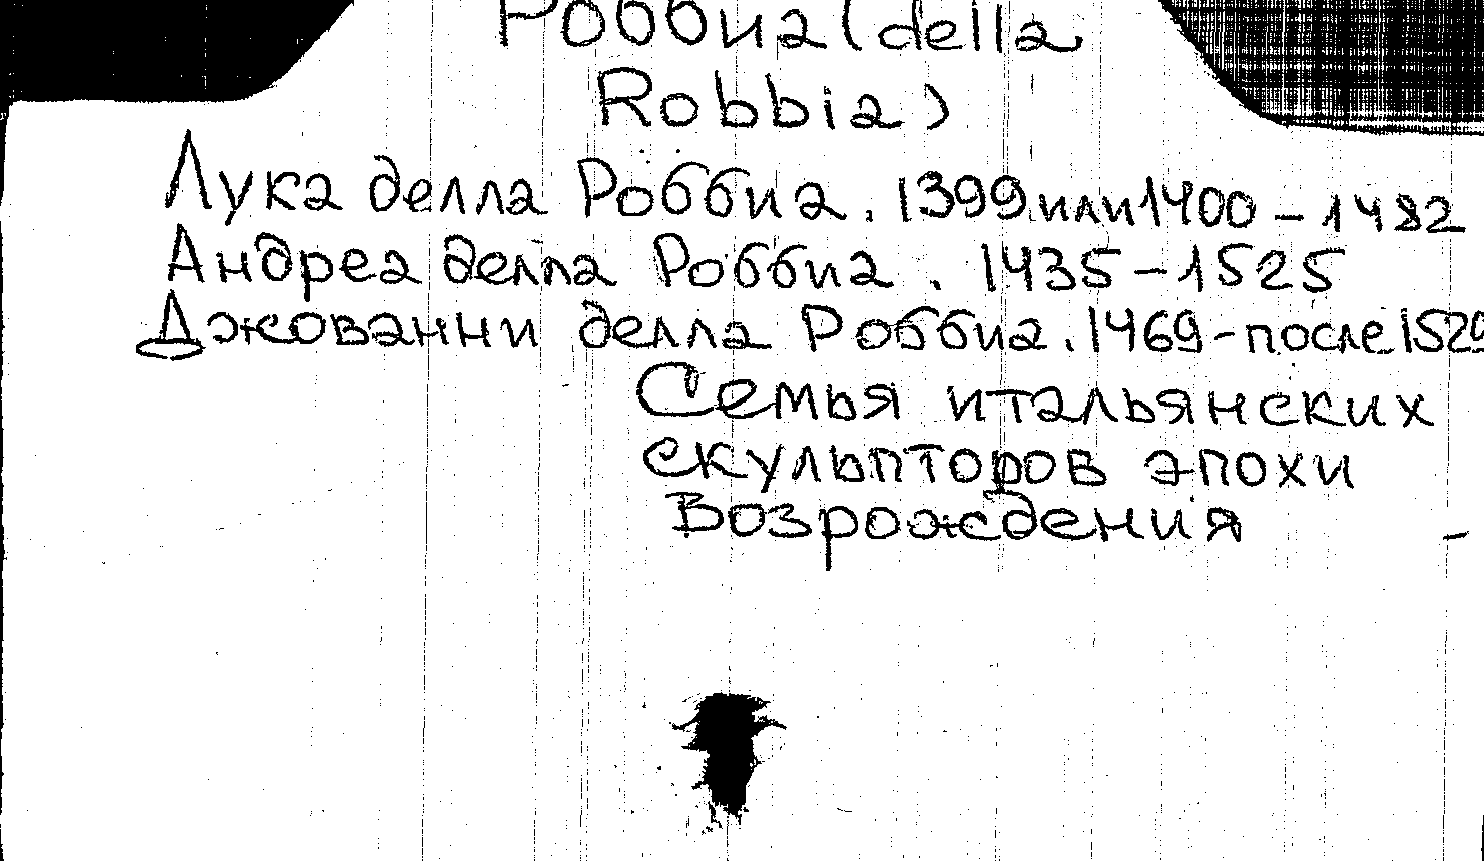 Роббиа (della
Robbia)
Лука делла Роббиа. 1399 или 1400 – 1482
Андреа делла Роббиа. 1435 – 1525
Джованни делла Роббиа. 1469 – после 1529
Семья итальянских
скульпторов эпохи
Возрождения